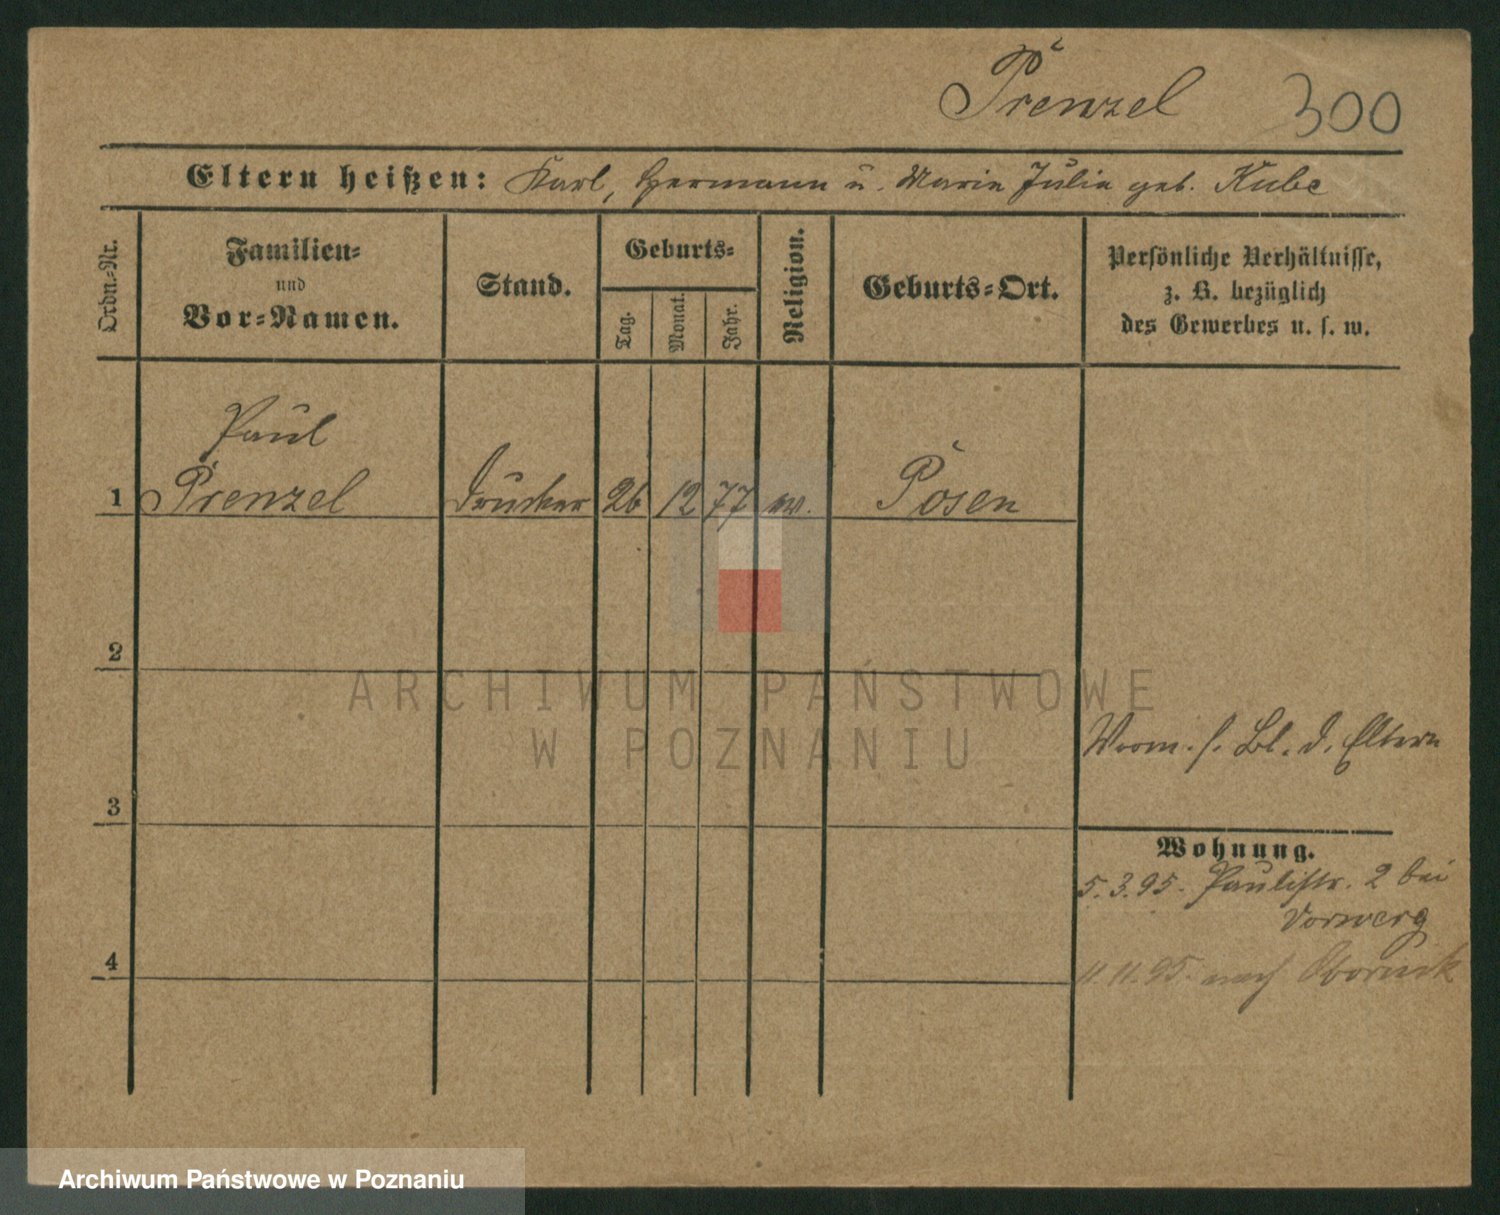 Prenzel 300
Eltern heißen: Karl, Hermann u. Maria Julia geb. Kube
Ordn.-Nr.
Familien-
und
Vor-Namen.
Stand.
Geburts-
Tag.
Monat.
Jahr.
Religion.
Geburts-Ort.
Persönliche Verhältnisse,
z. B. bezüglich
des Gewerbes u. s. w.
Paul
1 Prenzel Drucker 26 12 77 ev. Posen
2
ARCHIWUM PAŃSTWOWE
W POZNANIU
s. Bl. d. Eltern
3
Wohnung.
5.3.95. Paulistr. 2 bei
Vorwerg
4
11.11.95. nach Obornik
Archiwum Państwowe w Poznaniu